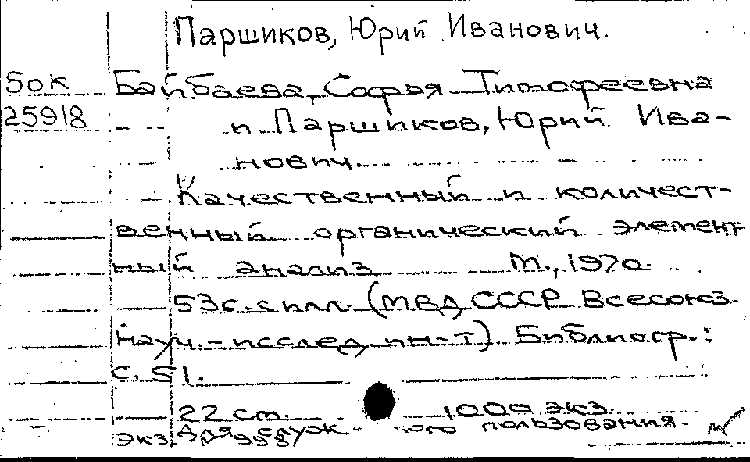 Паршиков, Юрий Иванович.
50к Байбаева, Софья Тимофеевна
25918 и Паршиков, Юрий Ива-
нович.
Качественный и количест-
венный органический элемент
ный анализ М., 1970.
53с. с илл. (МВД СССР Всесоюз.
науч.-исслед. ин-т). Библиогр.:
с. 51.
22 см. 1000 экз.
Для служ. -ого пользования.
Экз.